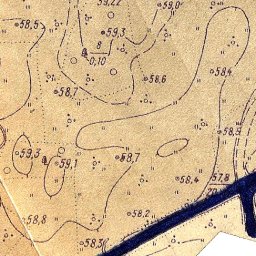 59,22
59,0
58,5
59,3
8
0,10
58,6
58,4
58,7
58,5
59,3
59,1
58,7
58,4
57,8
58,8
58,2
58,3